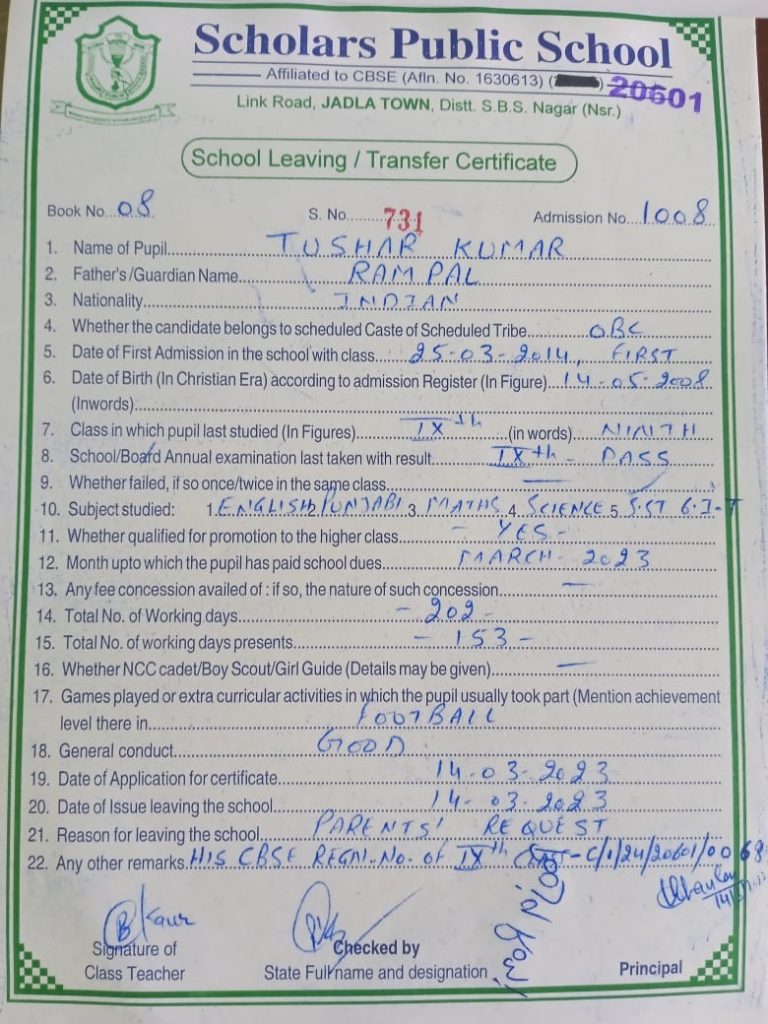 Scholars Public School
Affiliated to CBSE (Afln. No. 1630613) ( ) 20601
Link Road, JADLA TOWN, Distt. S.B.S. Nagar (Nsr.)
School Leaving / Transfer Certificate
Book No...08 S. No........731 Admission No...1008
1. Name of Pupil....TUSHAR KUMAR
2. Father's/Guardian Name....RAM PAL
3. Nationality....INDIAN
4. Whether the candidate belongs to scheduled Caste of Scheduled Tribe....OBC
5. Date of First Admission in the school with class....25-03-2014, FIRST
6. Date of Birth (In Christian Era) according to admission Register (In Figure)...14-05-2008
(Inwords)....
7. Class in which pupil last studied (In Figures)....IXth....(in words)....NINTH
8. School/Board Annual examination last taken with result....IXth - PASS
9. Whether failed, if so once/twice in the same class....—
10. Subject studied: 1.ENGLISH 2.PUNJABI 3.MATHS 4.SCIENCE 5.S.ST 6.I-T
11. Whether qualified for promotion to the higher class....- YES -
12. Month upto which the pupil has paid school dues....MARCH - 2023
13. Any fee concession availed of : if so, the nature of such concession....—
14. Total No. of Working days....- 202 -
15. Total No. of working days presents....- 153 -
16. Whether NCC cadet/Boy Scout/Girl Guide (Details may be given)....—
17. Games played or extra curricular activities in which the pupil usually took part (Mention achievement
level there in....FOOTBALL
18. General conduct....GOOD
19. Date of Application for certificate....14-03-2023
20. Date of Issue leaving the school....14-03-2023
21. Reason for leaving the school....PARENTS' REQUEST
22. Any other remarks.HIS CBSE REGN.No. of IXth - C/1/24/20601/0068
Kaur
Signature of
Class Teacher
Checked by
State Full name and designation
Principal